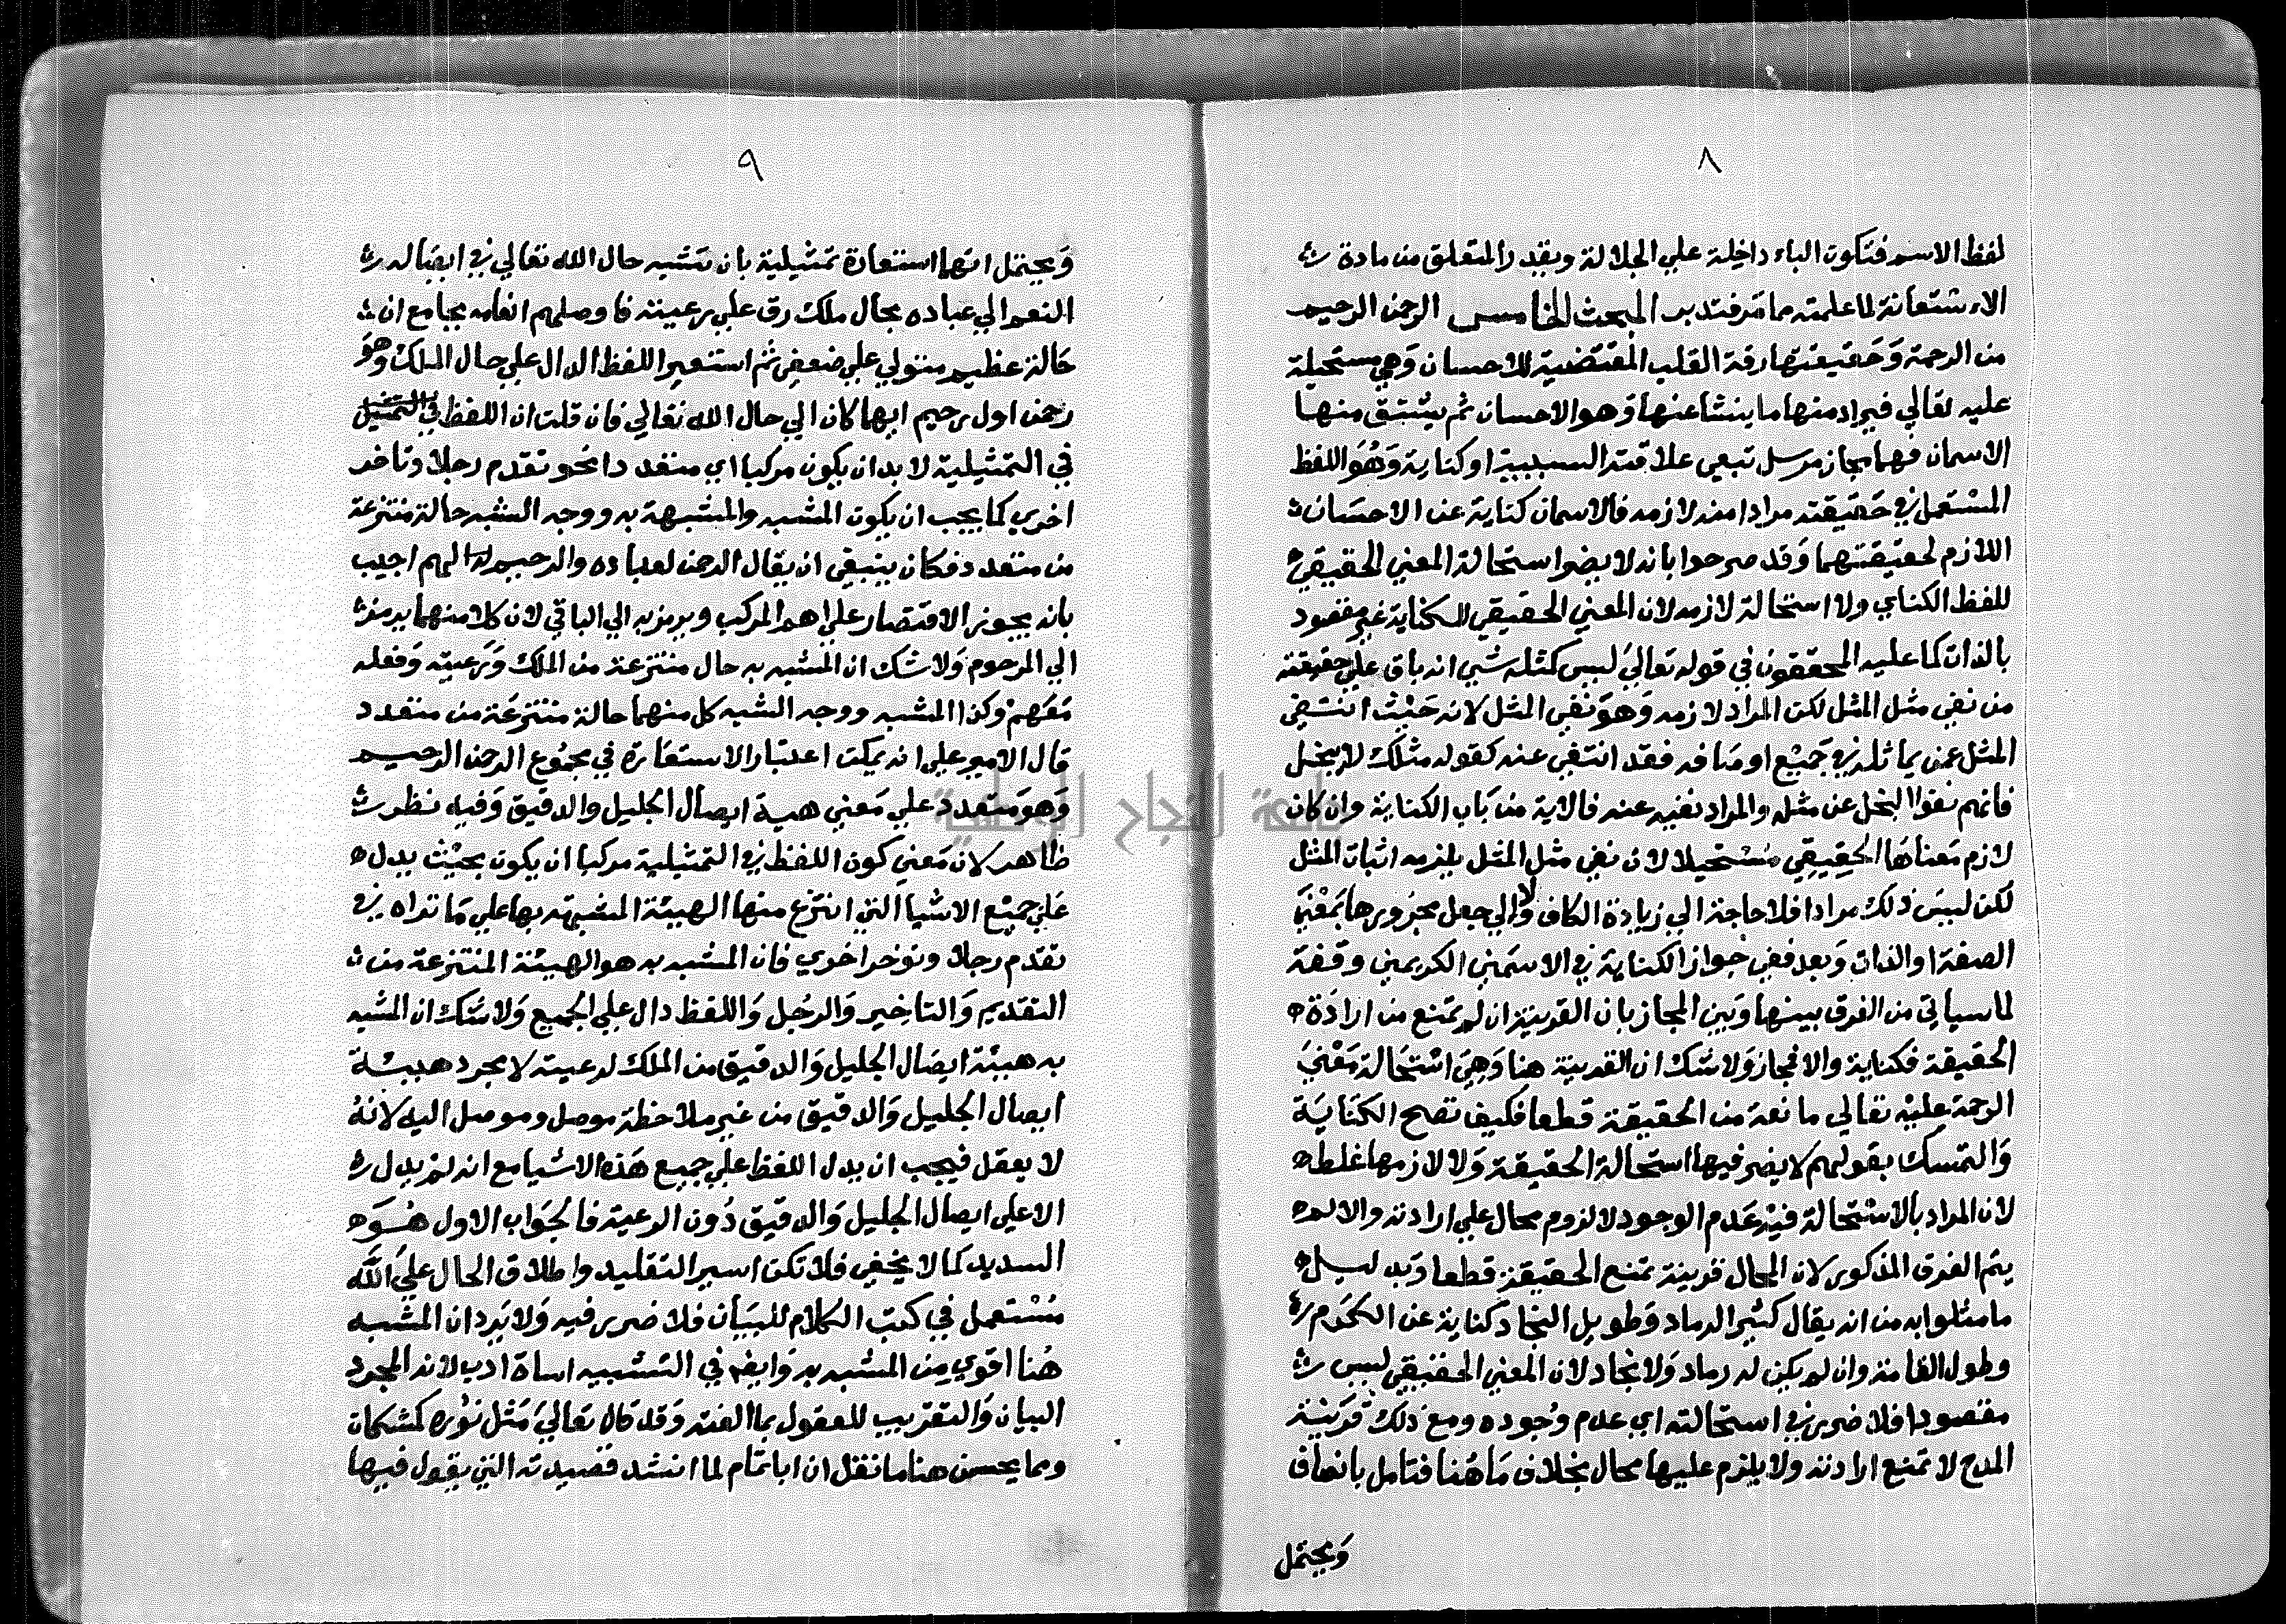 ٨
لفظ الاسم فتكون الباء داخلة علي الجلالة ويقدر المتعلق من مادة
الاستعانة لما علمته مما مر فتدبر المبحث الخامس الرحمن الرحيم
من الرحمة وَحَقيقتها رقة القلب المقتضية للاحسان وَهي مستحيلة
عليه تعالي فيراد منها ما ينشا عنها وَهو الاحسان ثم يشتق منها
الاسمان فهما مجاز مرسل تبعي علاقته السببية او كناية وَهُوَ اللفظ
المسْتعمل في حَقيقته مرادا منه لازمه فالاسمان كناية عن الاحسَان
اللازم لحقيقتهما وَقد صرحوا بانه لا يضر استحالة المعني الحقيقي
للفظ الكناي ولا استحالة لازمه لان المعني الحقيقي للكناية غير مقصود
بالذات كما عليه المحققون في قوله تعالي ليس كمثله شي انه باق علي حقيقته
من نفي مثل المثل لكن المراد لازمه وَهوَ نفي المثل لانه حَيْث انتفي
المثل عمن يماثله في جَميْع اوصَافه فقد انتفي عنه كقوله مثلك لا يبخل
فانهم نفوا البخل عن مثله والمراد نفيه عنه فالاية من بَاب الكناية وان كان
لازم مَعناهَا الحقيقِي مُسْتحيلا لان نفي مثل المثل يلزمه اثبات المثل
لكن ليسَ ذلك مرادا فلا حاجة الي زيادة الكاف وَلا الي جعل مجرورها بمَعْني
الصفة او الذات وَبعد ففي جواز الكناية في الاسمَين الكريمين وقفة
لما سياتي من الفرق بينها وَبين المجاز بان القرينة ان لم تمنع من ارادَة
الحقيقة فكناية والا فمجاز وَلا شك ان القرينة هنا وَهِيَ اسْتحَالة مَعْنيَ
الرحمة عليْه تعالي مانعة من الحقيقة قطعا فكيف تصح الكنَايَة
وَالتمسك بقولهم لا يضر فيها استحالة الحقيقة وَلا لازمها غلط
لان المراد بالاسْتحالة فيْه عَدم الوجود لا لزوم محال علي ارادته والا لم
يتم الفرق المذكور لان المحال قرينة تمنع الحقيقة قطعا وَبدليل
ما مثلوا به من انه يقال كثير الرماد وَطويل النجاد كناية عن الكَرَم
وطول القامة وان لم يكن له رماد وَلا نجاد لان المعني الحقيقي ليس
مقصودا فلا ضرر في استحالته اي عدم وُجوده ومع ذلك قرَينة
المدح لا تمنع ارادته ولا يلزم عليها محال بخلاف مَا هُنا فتامل بانصاف
وَيحتمل
٩
وَيحتمل انهما استعارة تمثيلية بان تشبه حال الله تعالي في ايصَاله
النعم الي عباده بحال ملك رق علي رعيته فاوصلهم انعامه بجامع ان
حَالة عظيم متولي علي ضعفي ثم استعير اللفظ الدال علي حال الملك وَهوَ
رحمن اول رحيم ايها كان الي حال الله تعالي فان قلت ان اللفظ في
في التمثيلية لا بد ان يكون مركبا اي متعددا نحو تقدم رجلا وتاخر
اخري كما يجب ان يكون المشبه والمشبهة به ووجه الشبه حالة منتزعة
من متعدد فكان ينبغي ان يقال الرحمن لعباده والرحيم لهم اجيب
بانه يجوز الاقتصار علي اهم المركب ويرمز به الي الباقي لان كلا منهما يرمز
الي المرحوم وَلا شك ان المشبه به حال منتزعة من الملك وَرَعيته وَفعله
مَعَهمْ وكذا المشبه ووجه الشبه كل منهما حالة منتزعَة من متعدد
قال الامير علي انه يمكن اعتبار الاستعَارة في مجمُوع الرحمن الرحيم
وَهوَ متعدد علي مَعني هية ايصال الجليل والدقيق وَفيه نظر
ظاهر لان مَعني كون اللفظ في التمثيلية مركبا ان يكون بحيْث يدل
عَلي جميْع الاشيا التي انتزع منها الهيئة المشبهة بها علي مَا تراه في
تقدم رجلا وتؤخر اخري فان المشبه به هو الهيئة المنتزعة من
التقديم وَالتاخير وَالرجُل وَاللفظ دال علي الجميع وَلا شك ان المشبه
به هيئة ايصَال الجليل وَالدقيق من الملك لرعيته لا مجرد هيئة
ايصال الجليل وَالدقيق من غير ملاحظة موصل وموصل اليه لانهُ
لا يعقل فيجب ان يدل اللفظ علي جميع هَذه الاشيا مع انه لمْ يدل
الا علي ايصال الجليل وَالدقيق دُون الرعية فالجَواب الاول هُوَ
السديد كما لا يخفي فلا تكن اسير التقليد واطلاق الحال عليَ اللّه
مُسْتعمل في كتب الكلام للبيَان فلا ضرر فيه وَلا يَرد ان المشبه
هُنا اقوي مِن المشبه به وَايضا في التشبيه اساة ادب لانه لمجرد
البيان وَالتقريب للعقول بما الفته وَقد قال تعاليَ مَثل نوْره كمشكاة
ومما يحسن هنا ما نقل ان ابا تمام لما انشد قصيدته التي يقول فيها